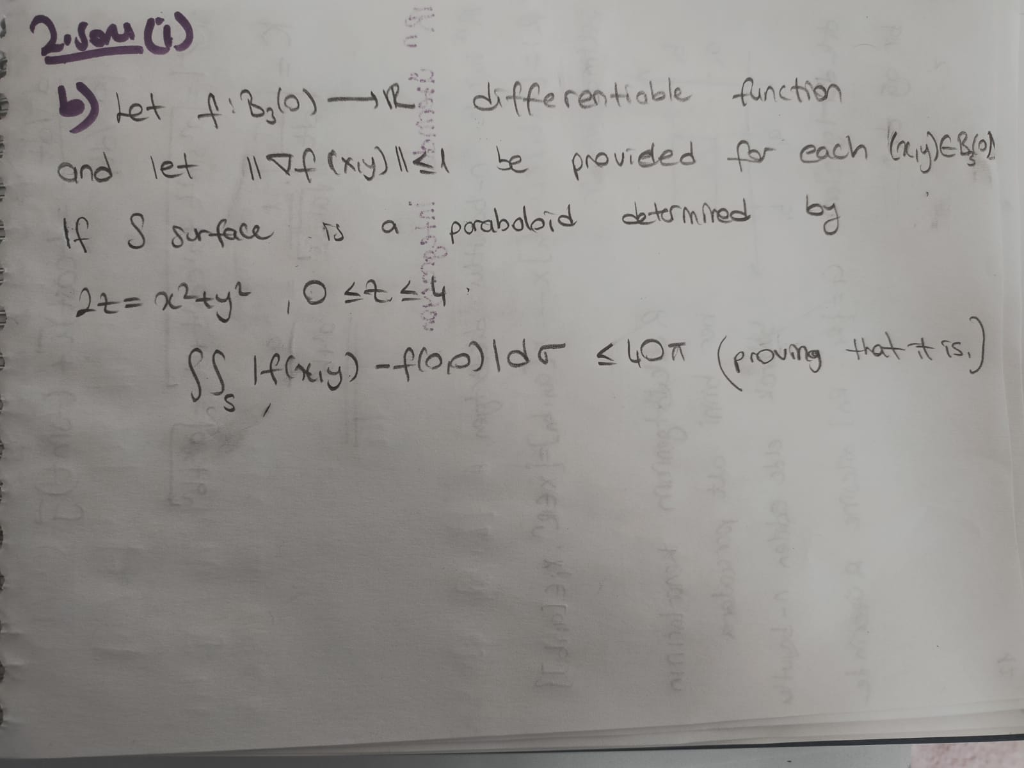 2.soru (i)
b) Let f: B₃(0) → ℝ differentiable function
and let ||∇f(x,y)|| ≤ 1 be provided for each (x,y)∈B₃(0)
If S surface is a paraboloid determined by
2z = x²+y² , 0 ≤ z ≤ 4.
∬_S |f(x,y) - f(0,0)| dσ ≤ 40π (proving that it is.)